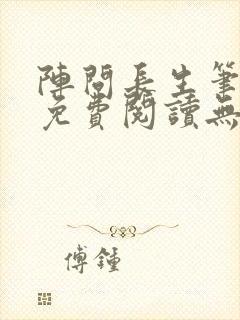 陣問長生筆
免費閱讀無
傅鍾